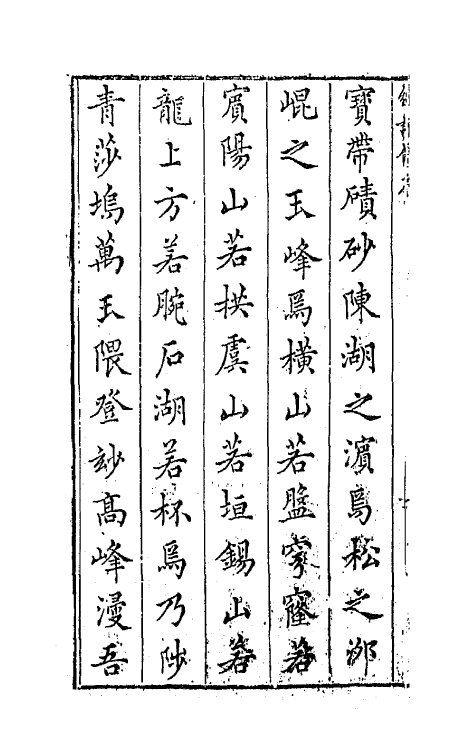 寶帶磧砂陳湖之濱焉松之泖
崐之玉峰焉橫山若盤穹窿若
賓陽山若拱虞山若垣錫山若
龍上方若腕石湖若杯焉乃陟
青莎塢萬玉隈登玅高峰漫吾